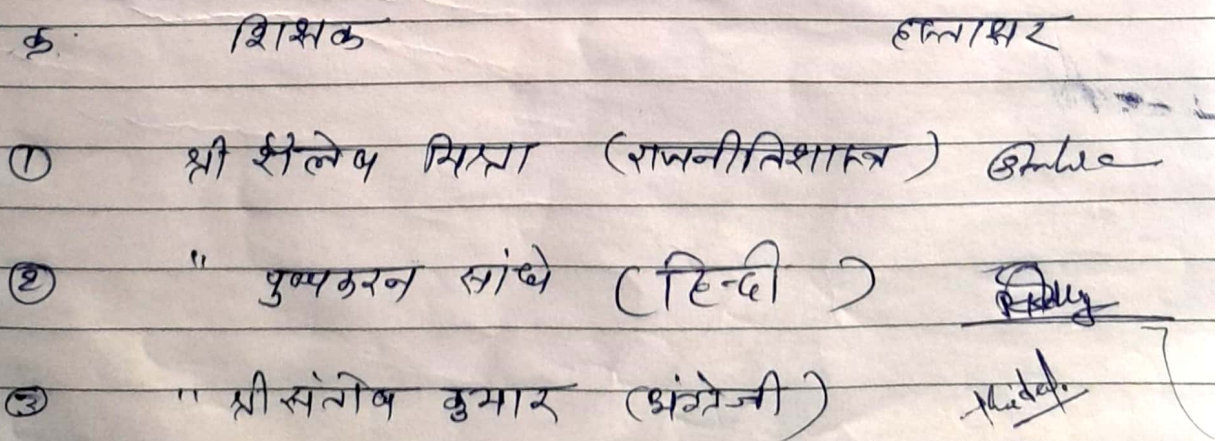 क्र. शिक्षक हस्ताक्षर
① श्री शैलेष मिश्रा (राजनीतिशास्त्र)
② " पुष्पकरन सांधे (हिन्दी)
③ " श्री संतोष कुमार (अंग्रेजी)